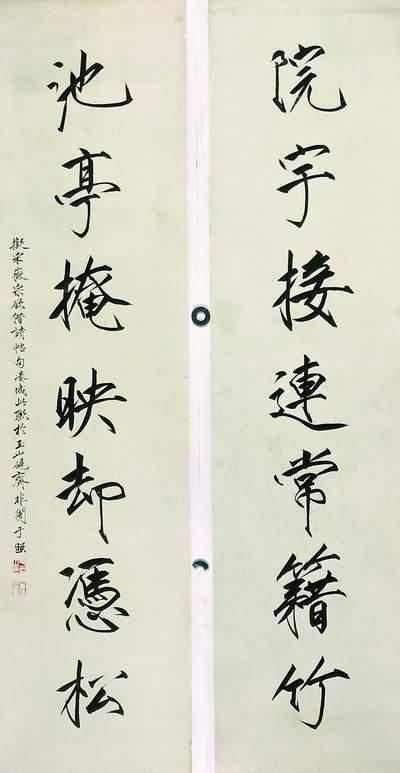 院宇接連常籍竹
池亭掩映却憑松
擬宋徽宗欲借詩帖句集成此聯於玉山硯齋非闇于照